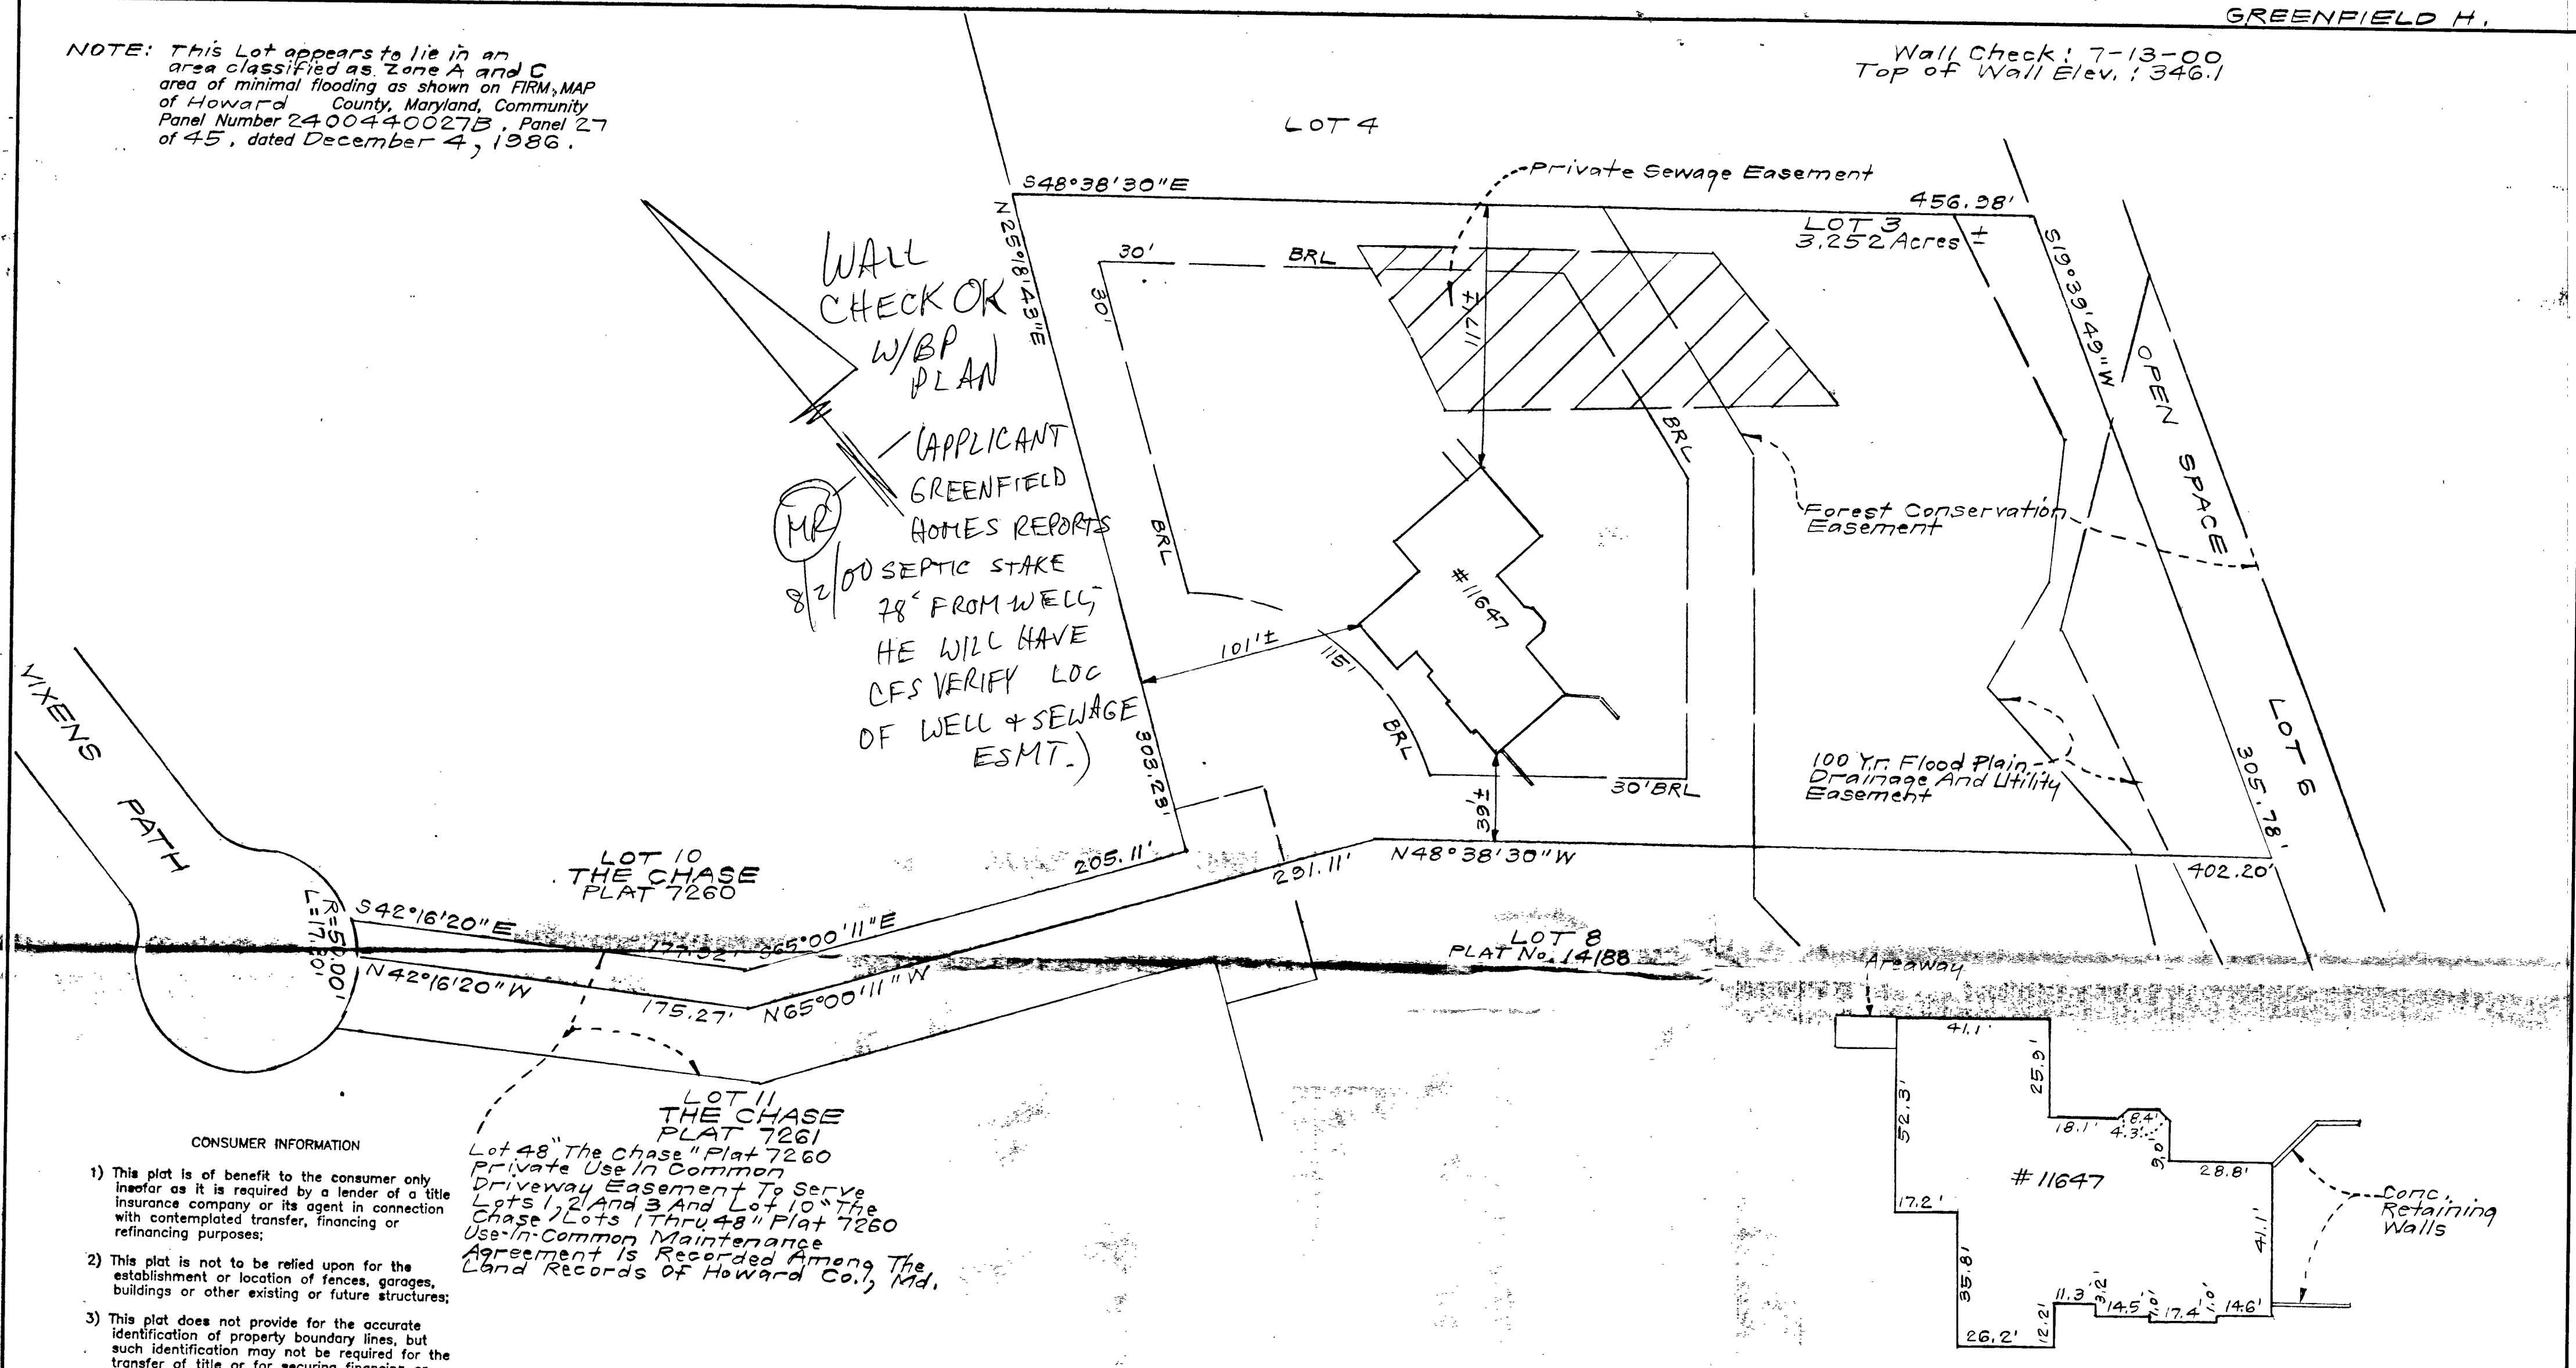 GREENFIELD H.
NOTE: This Lot appears to lie in an
area classified as Zone A and C
area of minimal flooding as shown on FIRM, MAP
of Howard County, Maryland, Community
Panel Number 2400440027B, Panel 27
of 45, dated December 4, 1986.
Wall Check: 7-13-00
Top of Wall Elev.: 346.1
LOT 4
Private Sewage Easement
S48°38'30"E
456.98'
LOT 3
3.252 Acres ±
N25°18'43"E
303.29'
S19°39'49"W
305.78'
30'
BRL
30'
BRL
117'±
BRL
OPEN SPACE
LOT 6
WALL
CHECK OK
W/BP
PLAN
(APPLICANT
GREENFIELD
HOMES REPORTS
SEPTIC STAKE
78' FROM WELL,
HE WILL HAVE
CFS VERIFY LOC
OF WELL + SEWAGE
ESMT.)
MR
8/2/00
Forest Conservation
Easement
#11647
101'±
115'
BRL
36'±
30'BRL
100 Yr. Flood Plain,
Drainage And Utility
Easement
VIXENS PATH
LOT 10
THE CHASE
PLAT 7260
205.11'
291.11'
N48°38'30"W
402.20'
R=50.00'
S42°16'20"E
177.92'
S65°00'11"E
N42°16'20"W
175.27'
N65°00'11"W
LOT 8
PLAT No. 14188
Areaway
41.1'
25.9'
52.3'
18.1'
8.4'
4.3'
9.0'
28.8'
#11647
17.2'
41.1'
Conc.
Retaining
Walls
35.8'
11.3'
3.2'
14.5'
1.0'
17.4'
1.0'
14.6'
26.2'
12.2'
LOT 11
THE CHASE
PLAT 7261
Lot 48 "The Chase" Plat 7260
Private Use In Common
Driveway Easement To Serve
Lots 1, 2 And 3 And Lot 10 "The
Chase / Lots 1 Thru 48" Plat 7260
Use-In-Common Maintenance
Agreement Is Recorded Among The
Land Records Of Howard Co., Md.
CONSUMER INFORMATION
1) This plat is of benefit to the consumer only
insofar as it is required by a lender of a title
insurance company or its agent in connection
with contemplated transfer, financing or
refinancing purposes;
2) This plat is not to be relied upon for the
establishment or location of fences, garages,
buildings or other existing or future structures;
3) This plat does not provide for the accurate
identification of property boundary lines, but
such identification may not be required for the
transfer of title or for securing financing or